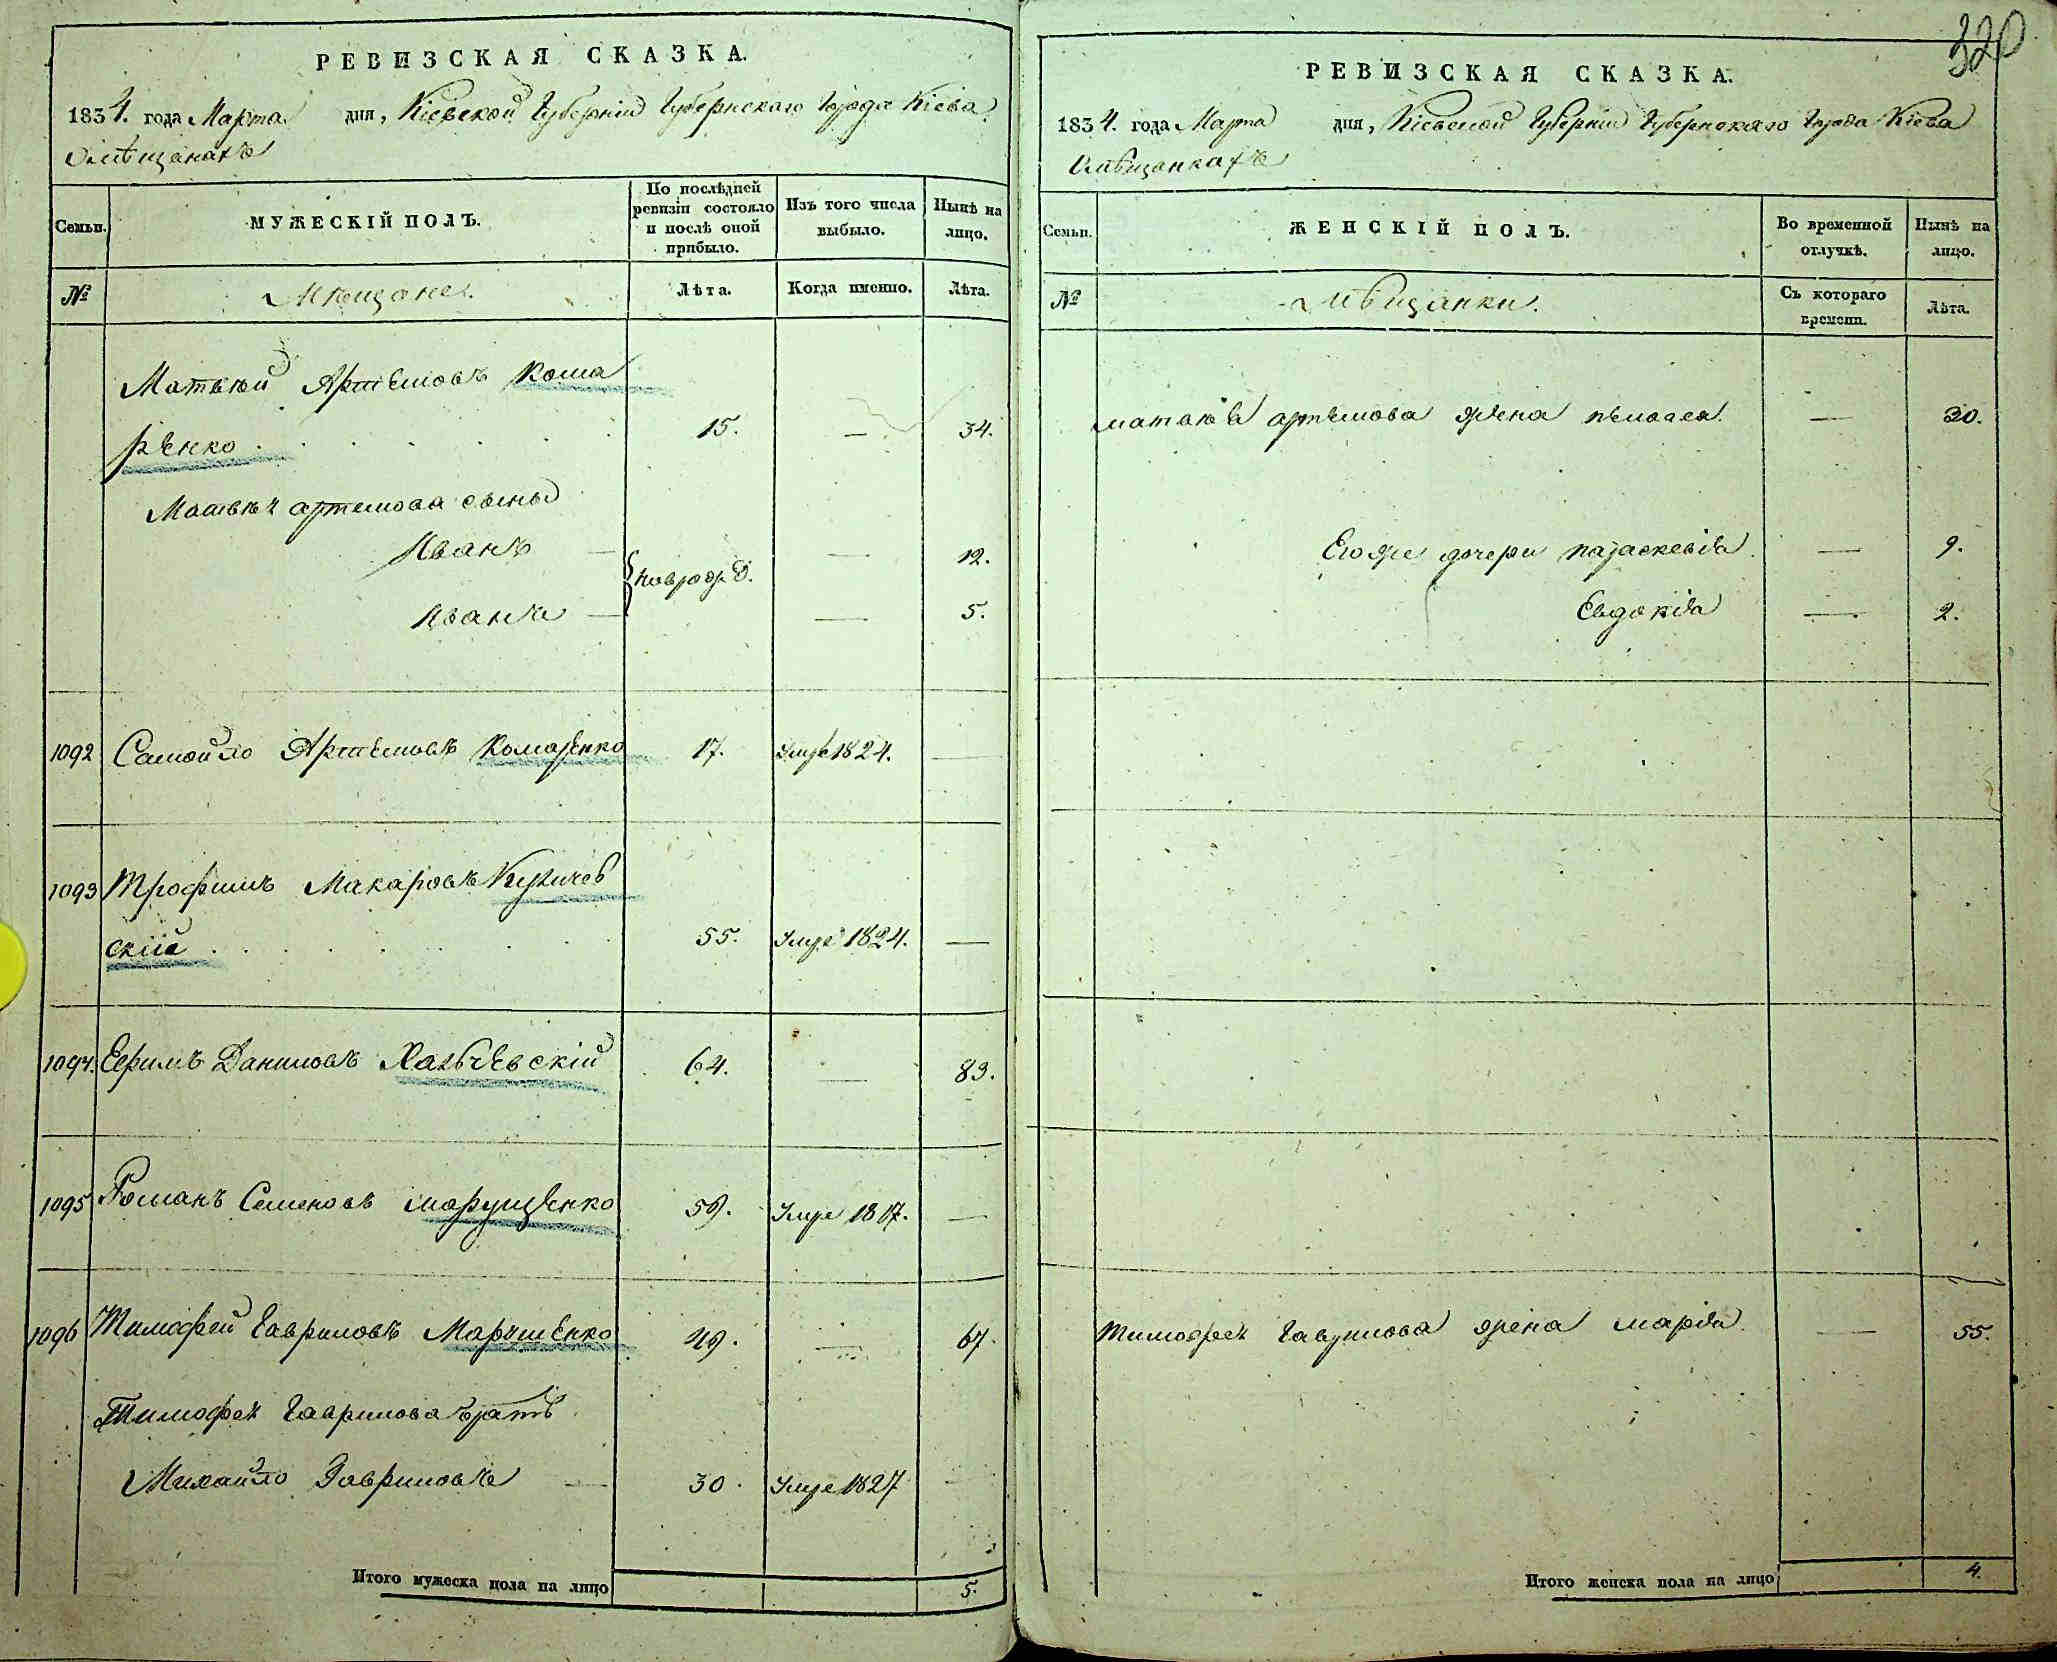 320
РЕВИЗСКАЯ СКАЗКА.
1834. года Марта дня, Кіевской Губерніи Губернскаго Города Кіева
О мѣщанахъ
Семьи.
МУЖЕСКІЙ ПОЛЪ.
По послѣдней ревизіи состояло и послѣ оной прибыло.
Изъ того числа выбыло.
Нынѣ на лицо.
№
Мѣщане.
Лѣта.
Когда именно.
Лѣта.
Матвѣй Артемовъ Кома
ренко 15. — 34.
Матвѣя Артемова сыны
Иванъ — новорожд. — 12.
Иванъ — — 5.
1092 Самойло Артемовъ Комаренко 17. Умре 1824. —
1093 Трофимъ Макаровъ
скій 55. Умре 1824. —
1094. Ефимъ Даниловъ Халѣевскій 64. — 83.
1095 Романъ Семеновъ Марущенко 59. Умре 1817. —
1096 Тимофей Гавриловъ Марущенко 49. — 67.
Тимофея Гаврилова братъ
Михайло Гавриловъ — 30. Умре 1827 —
Итого мужеска пола на лицо 5.
РЕВИЗСКАЯ СКАЗКА.
1834. года Марта дня, Кіевской Губерніи Губернскаго Города Кіева
О мѣщанкахъ
Семьи.
ЖЕНСКІЙ ПОЛЪ.
Во временной отлучкѣ.
Нынѣ на лицо.
№
Мѣщанки.
Съ котораго времени.
Лѣта.
Матвѣя Артемова жена Пелагея — 30.
Его же дочери Параскевія — 9.
Евдокія — 2.
Тимофея Гаврилова жена Марія — 55.
Итого женска пола на лицо 4.